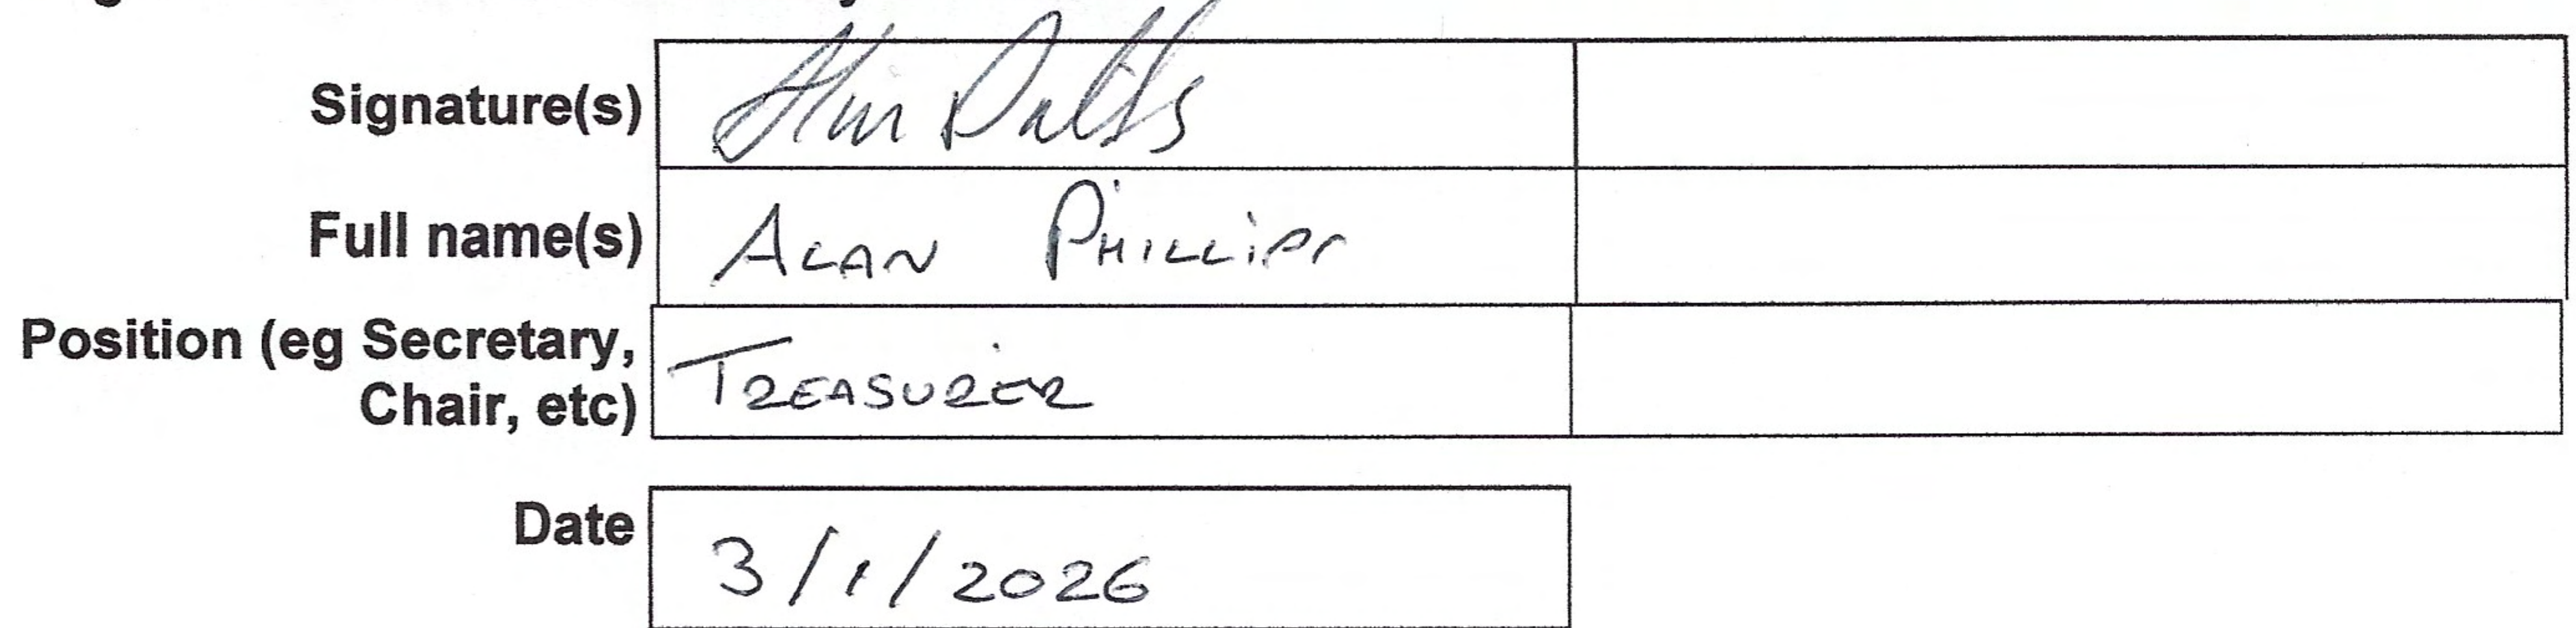 Signature(s)
Full name(s) ALAN PHILLIPS
Position (eg Secretary,
Chair, etc) TREASURER
Date 3/1/2026